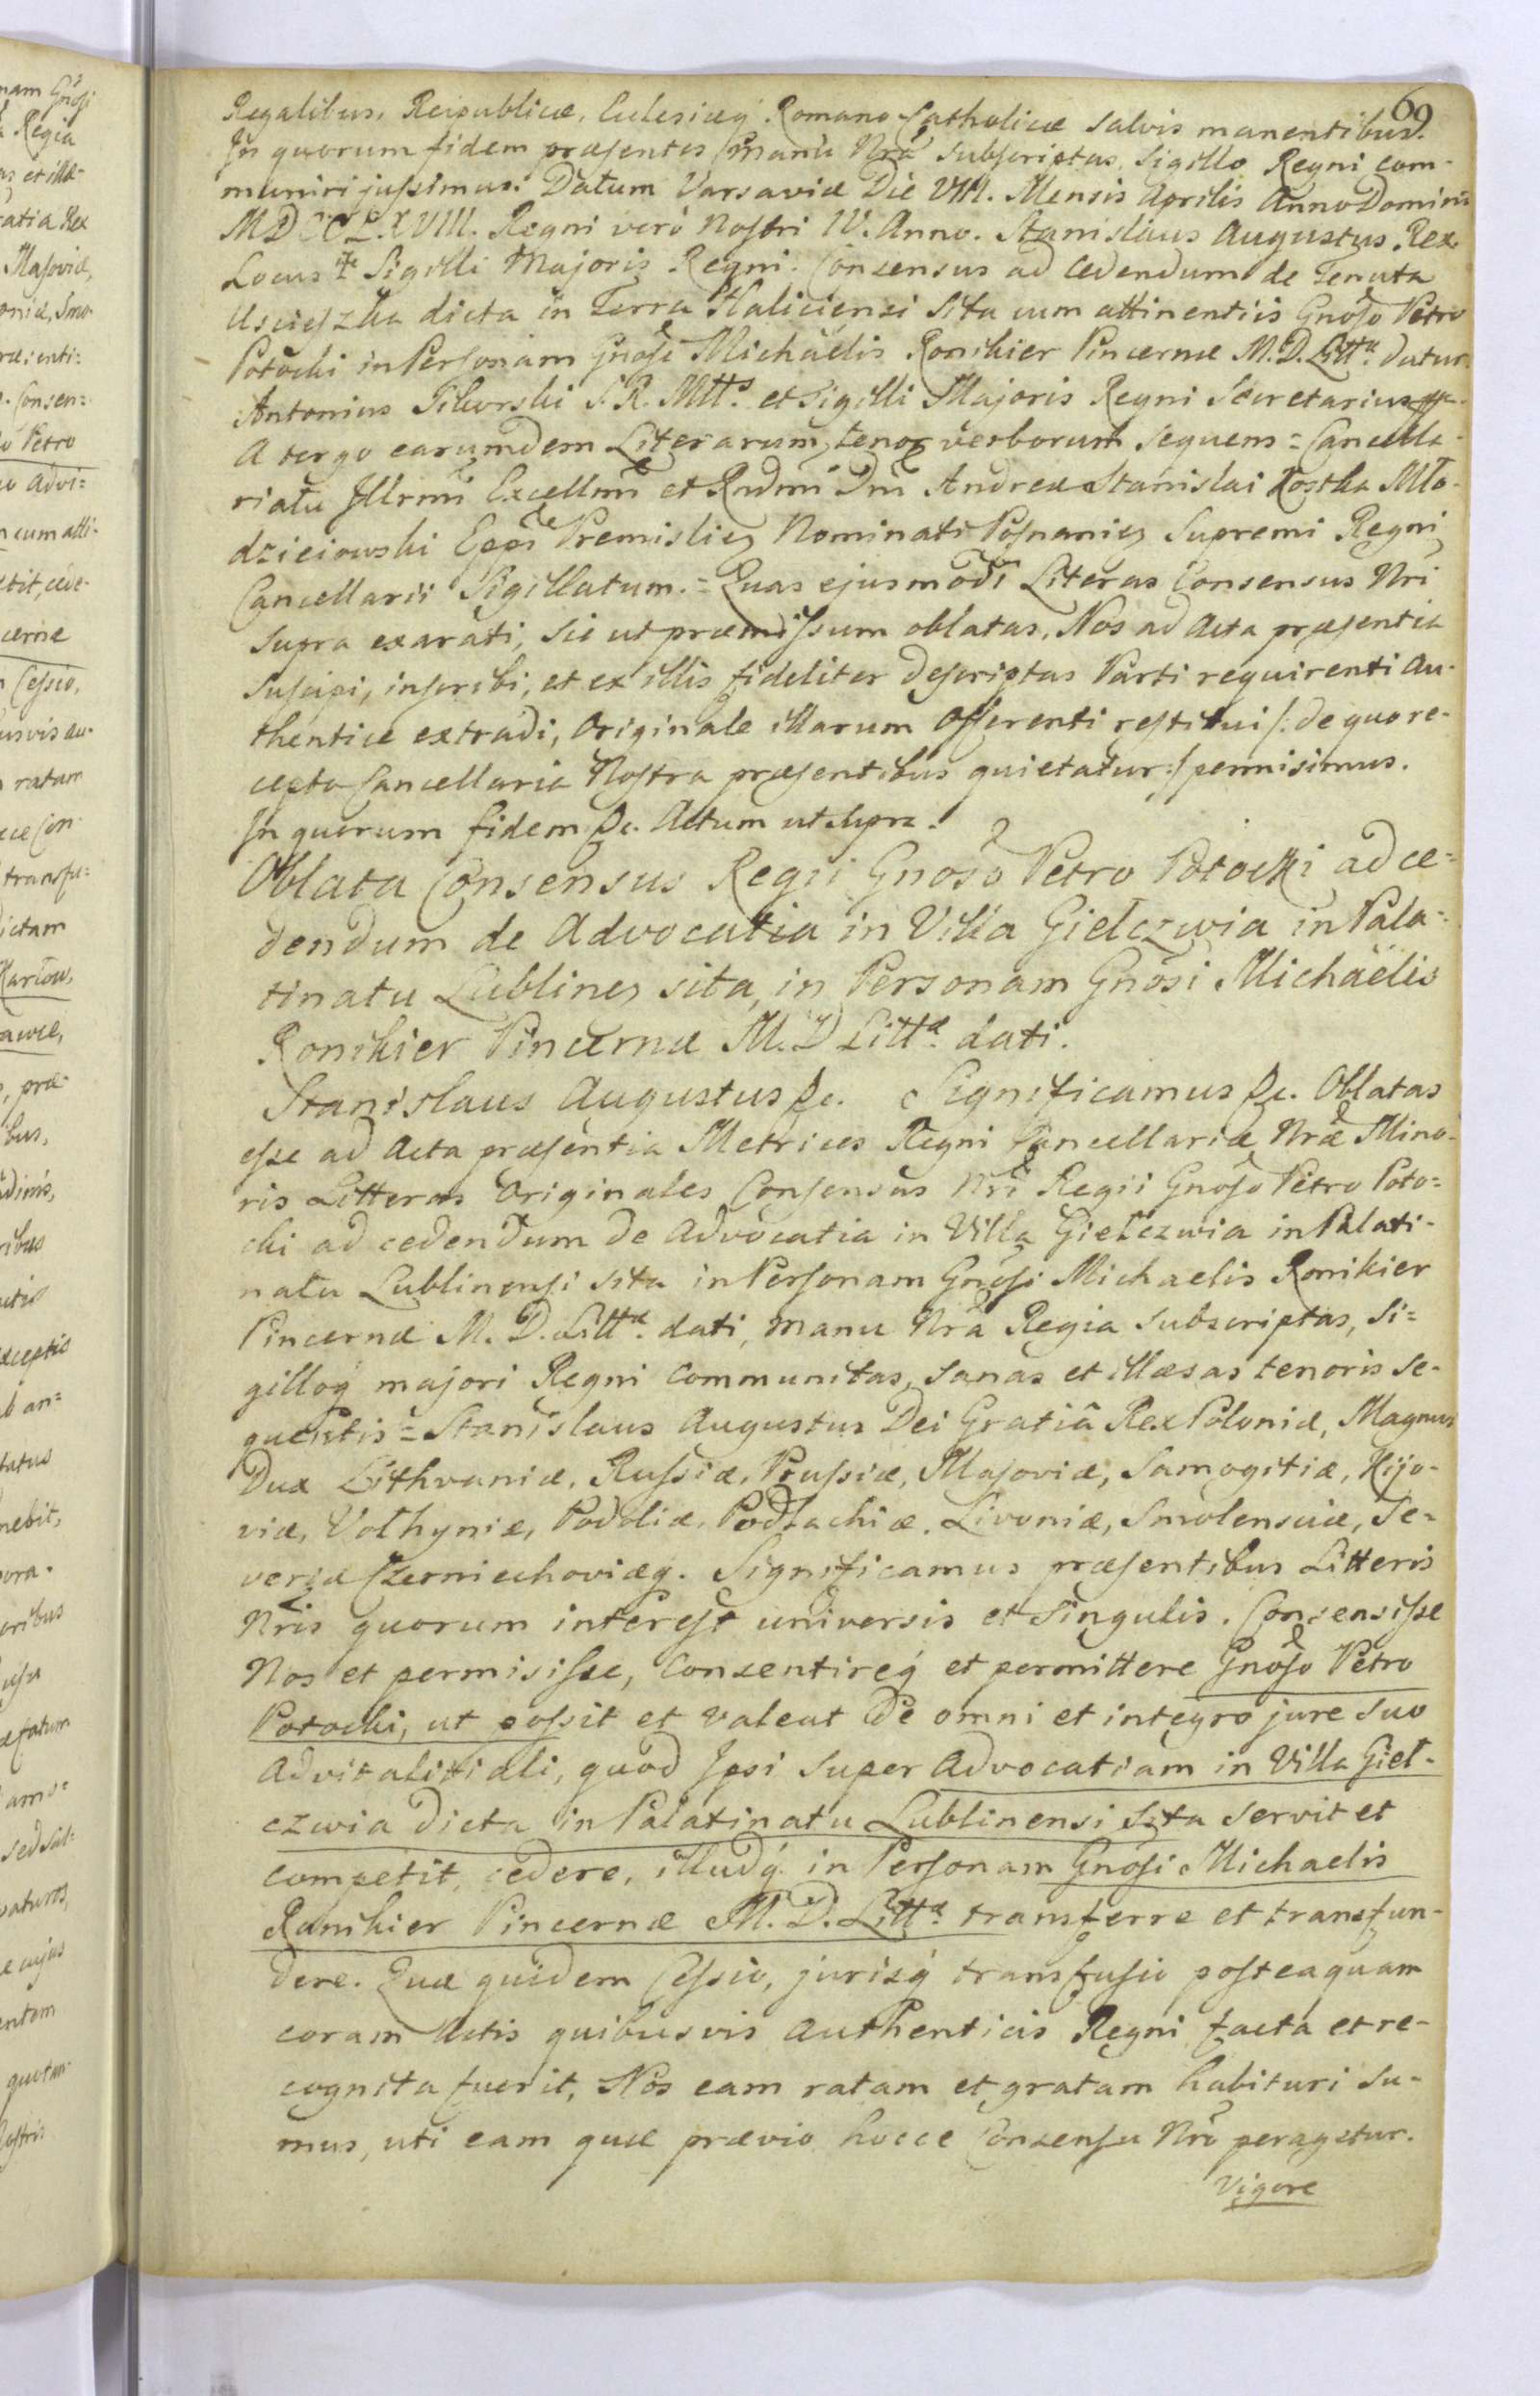 69
Regalibus, Reipublicæ, Eclesiæq́ Romano Catholicæ salvis manentibus.
In quorum fidem præsentes manù Nrã subscriptas, Sigillo Regni com-
muniri jussimus. Datum Varsaviæ Die VIII. Mensis Aprilis Anno Domini
MDCCLXVIII. Regni verò Nostri IV. Anno. Stanislaus Augustus Rex
Locus Sigilli Majoris Regni. Consensus ad cedendum de Tenuta
Uscieszka dicta in Terra Haliciensi Sita cum attinentiis Gnoso Petro
Potocki in Personam Gnosi Michäelis Ronikier Pincernæ M. D. Littæ. datur.
Antonius Sikorski S. R. Mttis et Sigilli Majoris Regni Secretarius
A tergo earumdem Literarum, tenor verborum sequens = Cancella-
riatu Illrmi Excellmi et Rndmi Dni Andreæ Stanislai Kostka Mło-
dzieiowski Eppi Premislien Nominati Posnanien Supremi Regni
Cancellarii Sigillatum. = Quas ejusmodi Literas Consensus Nri
supra exarati, sic ut præmissum oblatas, Nos ad Acta præsentia
suscipi, inscribi, et ex illis fideliter descriptas Parti requirenti au-
thentice extradi, Originale illarum Offerenti restitui /: de quo re-
cepto Cancellaria Nostra præsentibus quietatur :/ permisimus.
In quorum fidem &c. Actum ut supra.
Oblata Consensus Regii Gnoso Petro Potocki ad ce=
dendum de Advocatia in Villa Giełczwia in Pala=
tinatu Lublinen sita, in Personam Gnosi Michäelis
Ronikier Pincernæ M. D Littæ. dati.
Stanislaus Augustus &c. Significamus &c. Oblatas
esse ad Acta præsentia Metrices Regni Cancellariæ Nræ Mino-
ris Litteras Originales Consensus Nri Regii Gnoso Petro Poto=
cki ad cedendum de Advocatia in Villa Giełczwia in Palati-
natu Lublinensi sita in Personam Gnosi Michaelis Ronikier
Pincernæ M. D. Littæ. dati, manu Nrã Regia subscriptas, Si=
gilloq́ majori Regni communitas, sanas et illæsas tenoris se-
quentis = Stanislaus Augustus Dei Gratiâ Rex Poloniæ, Magnus
Dux Lithvaniæ, Russiæ, Prussiæ, Masoviæ, Samogitiæ, Kijo-
viæ, Volhyniæ, Podoliæ, Podlachiæ, Livoniæ, Smolensciæ, Se=
veriæ Czerniechoviæq́. Significamus præsentibus Litteris
Nris quorum interest universis et singulis. Consensisse
Nos et permisisse, Consentireq́ et permittere Gnoso Petro
Potocki, ut possit et valeat de omni et integro jure suo
advitalitiali, quod Ipsi super Advocatiam in Villa Gieł-
czwia dicta in Palatinatu Lublinensi sita servit et
competit, cedere, illudq́ in Personam Gnosi Michaelis
Ronikier Pincernæ M. D. Littæ. transferre et transfun-
dere. Quæ quidem Cessio, jurisq́ transfusio posteaquam
coram Actis quibusvis Authenticis Regni facta et re-
cognita fuerit, Nos eam ratam et gratam habituri su-
mus, uti eam quæ prævio hocce Consensu Nro peragetur.
Vigore